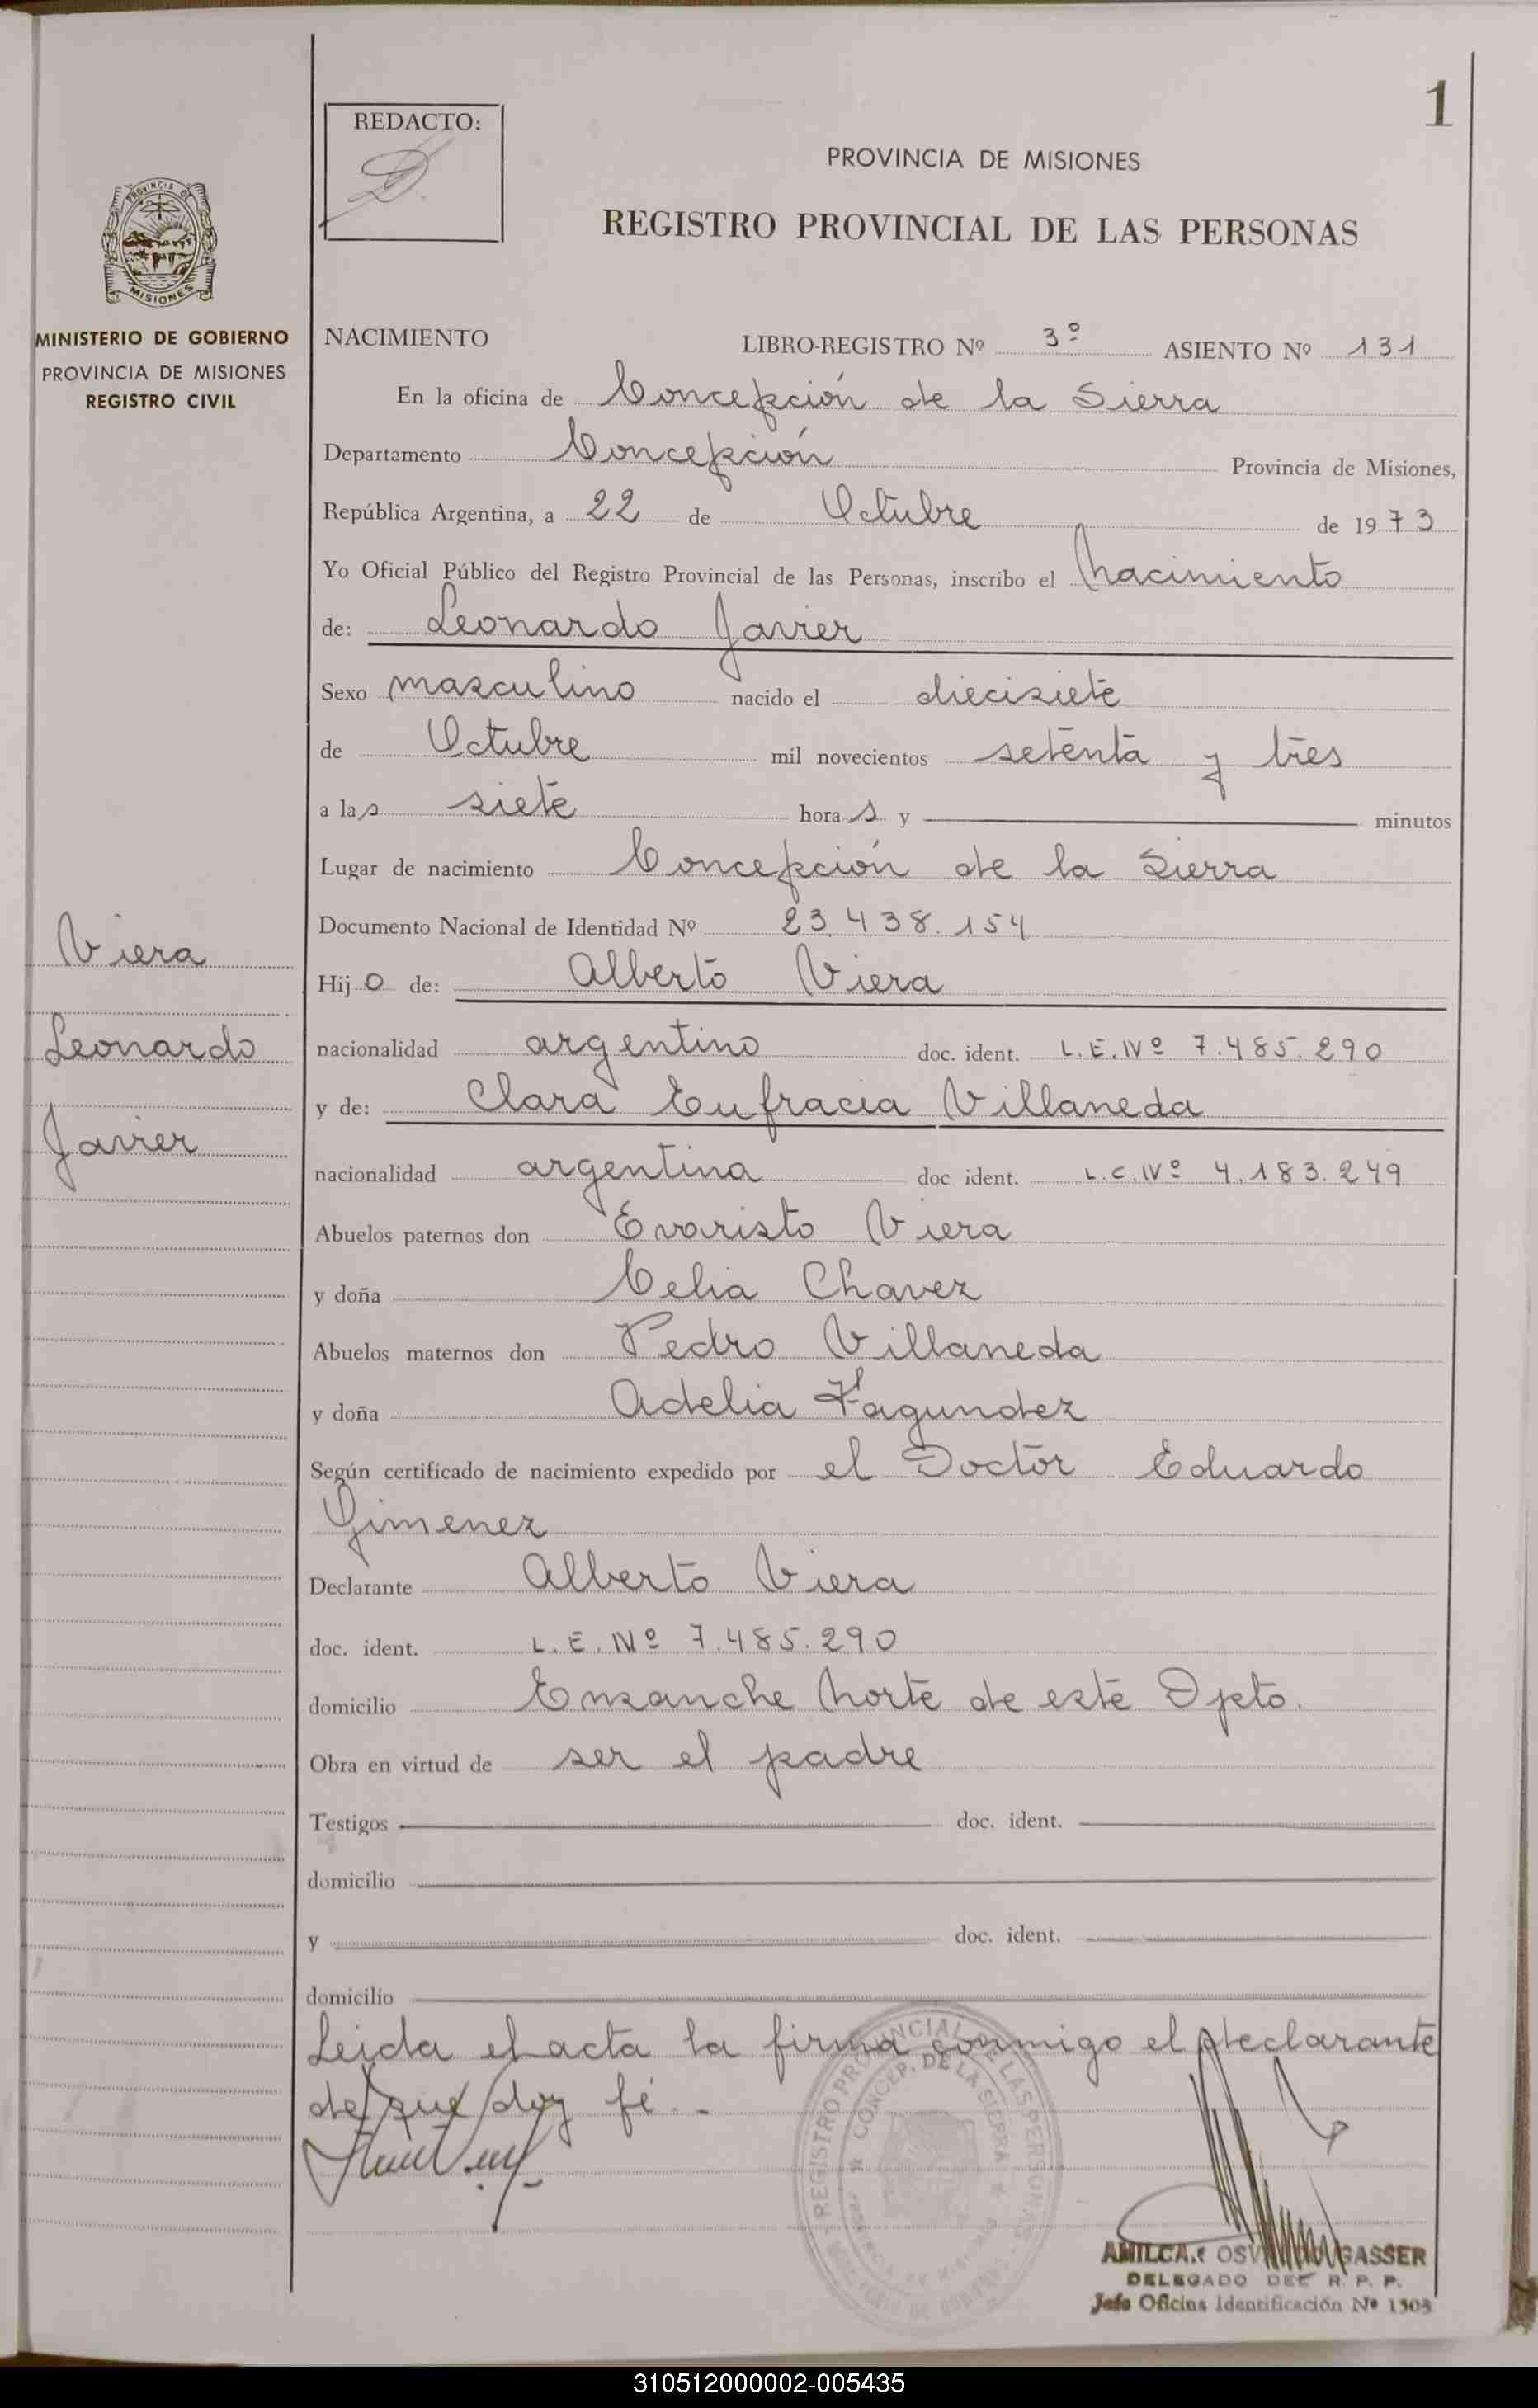 1
REDACTO:
PROVINCIA DE MISIONES
REGISTRO PROVINCIAL DE LAS PERSONAS
PROVINCIA DE
MISIONES
MINISTERIO DE GOBIERNO
PROVINCIA DE MISIONES
REGISTRO CIVIL
NACIMIENTO LIBRO-REGISTRO Nº 3º ASIENTO Nº 131
En la oficina de Concepción de la Sierra
Departamento Concepción Provincia de Misiones,
República Argentina, a 22 de Octubre de 1973
Yo Oficial Público del Registro Provincial de las Personas, inscribo el Nacimiento
de: Leonardo Javier
Sexo masculino nacido el diecisiete
de Octubre mil novecientos setenta y tres
a las siete horas y minutos
Lugar de nacimiento Concepción de la Sierra
Documento Nacional de Identidad Nº 23.438.154
Viera
Leonardo
Javier
Hijo de: Alberto Viera
nacionalidad argentino doc. ident. L.E.Nº 7.485.290
y de: Clara Eufracia Villaneda
nacionalidad argentina doc. ident. L.C.Nº 4.183.249
Abuelos paternos don Evaristo Viera
y doña Celia Chavez
Abuelos maternos don Pedro Villaneda
y doña Adelia Fagundez
Según certificado de nacimiento expedido por el Doctor Eduardo
Gimenez
Declarante Alberto Viera
doc. ident. L.E.Nº 7.485.290
domicilio Ensanche Norte de este Dpto.
Obra en virtud de ser el padre
Testigos doc. ident.
domicilio
y doc. ident.
domicilio
Leida el acta la firma conmigo el declarante
de que doy fé.-
REGISTRO PROVINCIAL DE LAS PERSONAS
CONCEP. DE LA SIERRA
AMILCAR GASSER
DELEGADO DEL R. P. P.
Jefe Oficina Identificación Nº 1503
310512000002-005435